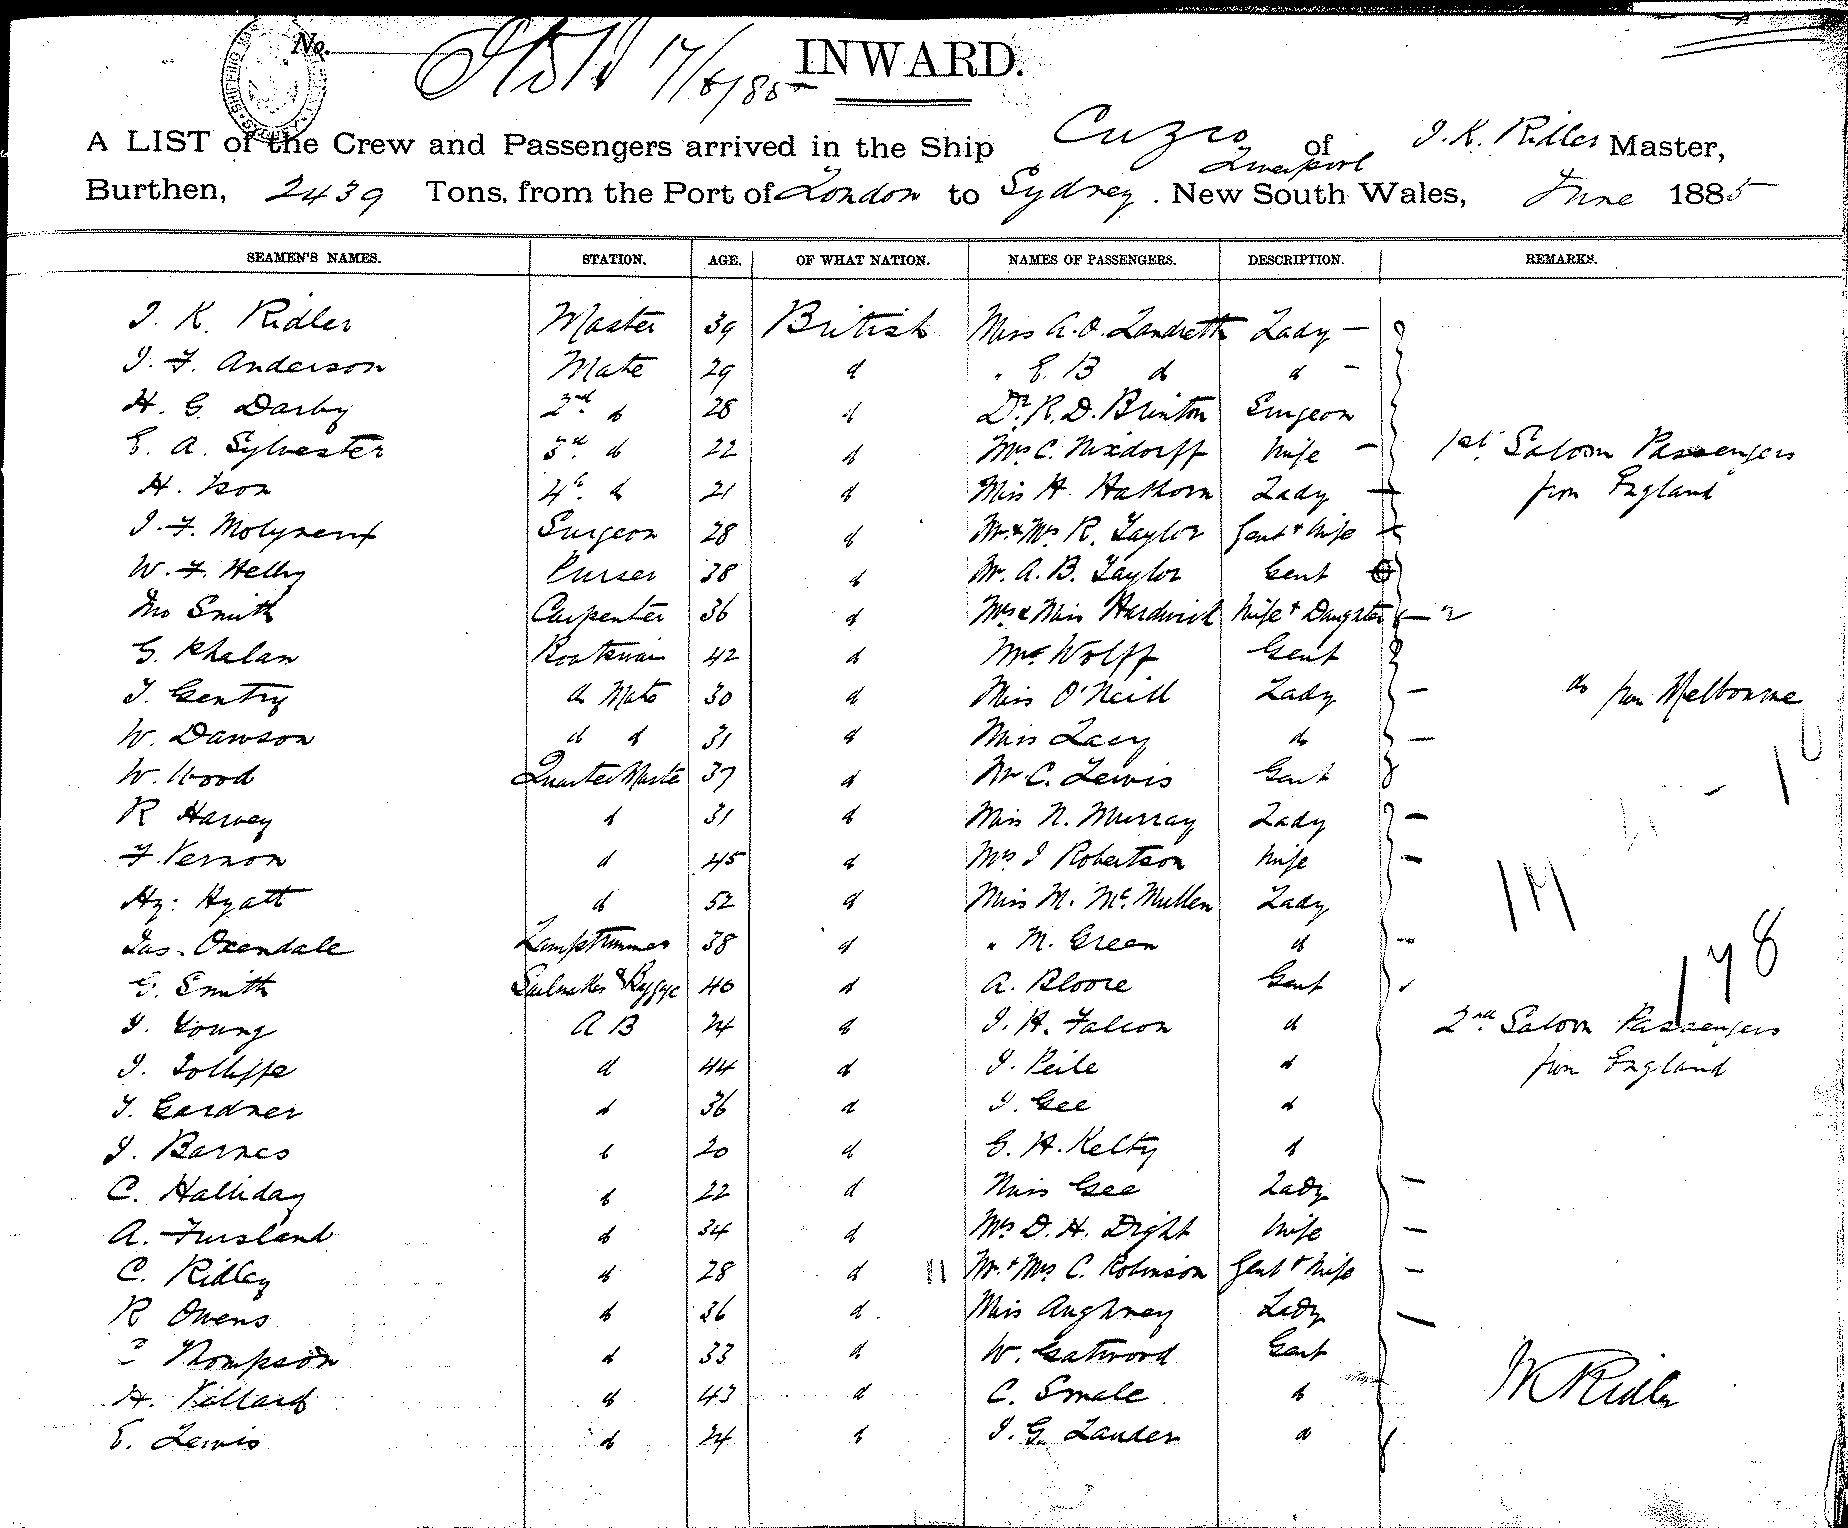 No.
17/6/85
INWARD.
A LIST of the Crew and Passengers arrived in the Ship Cuzco of Liverpool J. K. Ridler Master,
Burthen, 2439 Tons, from the Port of London to Sydney. New South Wales, June 1885
SEAMEN'S NAMES. STATION. AGE. OF WHAT NATION. NAMES OF PASSENGERS. DESCRIPTION. REMARKS.
J. K. Ridler Master 39 British Miss A. O. Landreth Lady —
J. F. Anderson Mate 29 do " E. B do do —
H. G. Darby 2nd do 28 do Dr. R. D. Brinton Surgeon
E. A. Sylvester 3rd do 22 do Mrs C. Nixdorff Wife — 1st Saloon Passengers
H. Ison 4th do 21 do Miss H. Hathorn Lady — from England
J. F. Molyneux Surgeon 28 do Mr & Mrs R. Taylor Gent & Wife —
W. F. Helby Purser 38 do Mr. A. B. Taylor Gent
Jno Smith Carpenter 36 do Mrs & Miss Hardwick Wife & Daughter — 2
G. Phalan Boatswain 42 do Mr. Wolff Gent
T. Gentry do Mate 30 do Miss O'Neill Lady — do from Melbourne
W. Dawson do do 31 do Miss Lacy do —
W. Wood Quarter Master 37 do Mr C. Lewis Gent
R Harvey do 31 do Miss N. Murray Lady —
F. Vernon do 45 do Mrs J Robertson Wife —
Hy: Hyatt do 52 do Miss M. McMullen Lady
Jas. Oxendale Lamptrimmer 38 do " M. Green do --
G. Smith Sailmaker & Rigger 40 do A. Bloore Gent
J. Young A B 24 do J. H. Falcon do 2nd Saloon Passengers
J. Jolliffe do 44 do J. Peile do from England
T. Gardner do 36 do J. Gee do
J. Barnes do 20 do G. H. Kelty do
C. Halliday do 22 do Miss Gee Lady —
A. Fursland do 34 do Mrs D. H. Dight Wife —
C. Ridley do 28 do Mr & Mrs C. Robinson Gent & Wife —
R Owens do 36 do Miss Aughney Lady —
Thompson do 33 do W. Gatwood Gent
H. Pillard do 43 do C. Smale do J K Ridler
E. Lewis do 24 do J. G. Lauder do